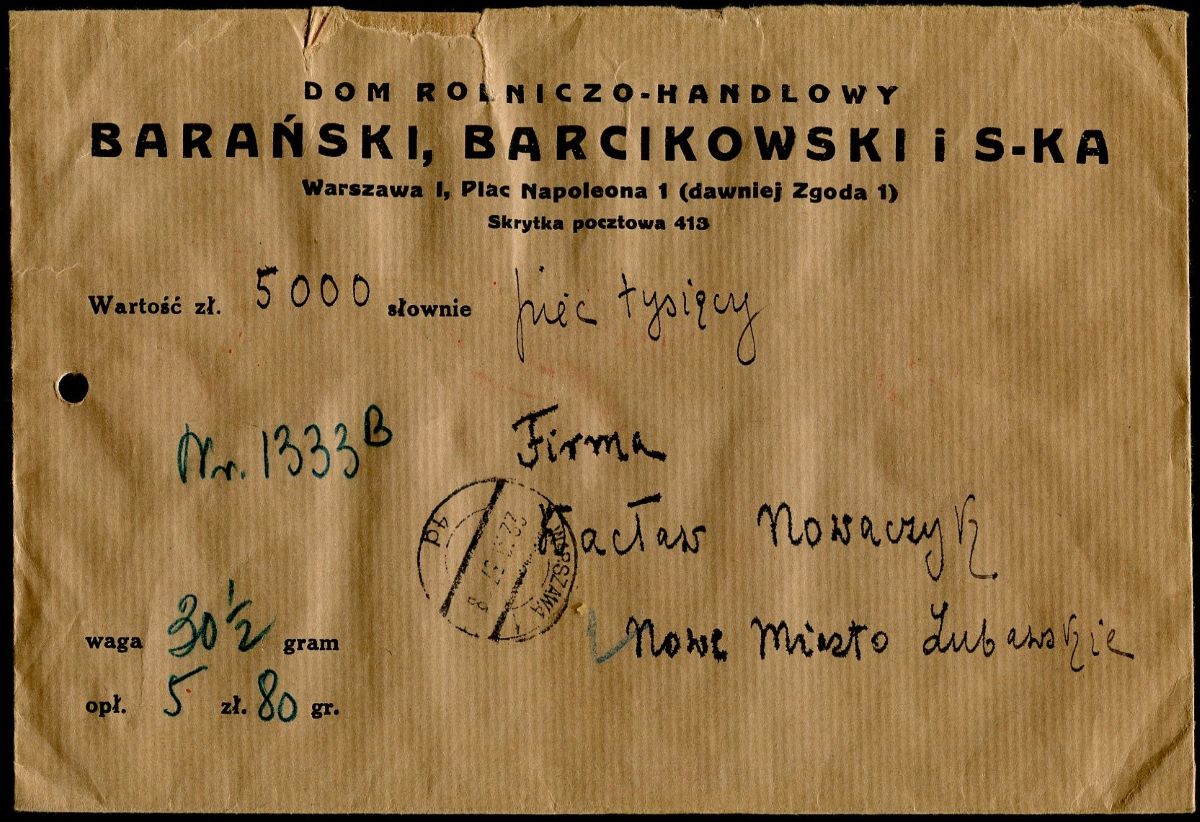 DOM ROLNICZO-HANDLOWY
BARAŃSKI, BARCIKOWSKI i S-KA
Warszawa I, Plac Napoleona 1 (dawniej Zgoda 1)
Skrytka pocztowa 413
Wartość zł. 5000 słownie pięć tysięcy
Nr. 1333B
Firma
Wacław Nowaczyk
Nowe Miasto Lubawskie
WARSZAWA 1
1d
waga 30 1/2 gram
opł. 5 zł. 80 gr.